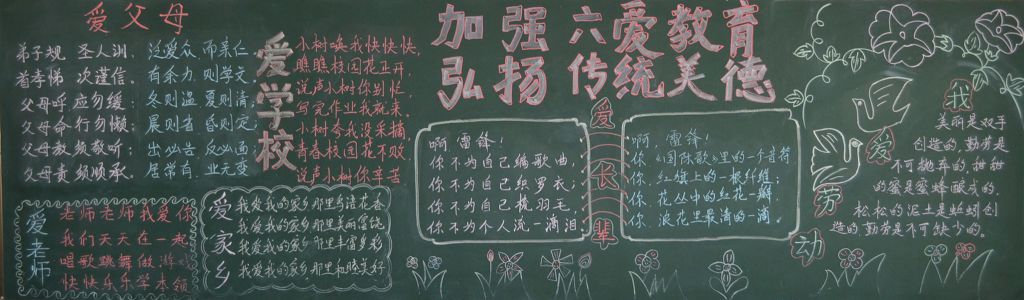 加强六爱教育
弘扬传统美德
爱父母
弟子规 圣人训 泛爱众 而亲仁
首孝悌 次谨信 有余力 则学文
父母呼 应勿缓 冬则温 夏则清
父母命 行勿懒 晨则省 昏则定
父母教 须敬听 出必告 反必面
父母责 须顺承 居常有 业无变
爱学校
小树唤我快快快,
瞧瞧校园花卫开,
说声小树你别忙
写完作业我就来,
小树夸我没采摘
青春校园花不败
说声小树你辛苦
爱老师
老师老师我爱你
我们天天在一起
唱歌跳舞做游戏
快快乐乐学本领
爱家乡
我爱我的家乡那里鸟语花香
我爱我的家乡那里美丽富饶
我爱我的家乡那里丰富多彩
我爱我的家乡那里和睦美好
爱长辈
啊 雷锋!
你不为自己编歌曲,
你不为自己织罗衣;
你不为自己梳羽毛,
你不为个人流一滴泪
啊 雷锋!
你,《国际歌》里的一个音符
你,红旗上的一根纤维;
你,花丛中的红花一瓣
你,浪花里最清的一滴。
我爱劳动
美丽是双手
创造的,勤劳是
不可抛弃的,甜甜
的蜜是蜜蜂酿成的,
松松的泥土是蚯蚓创
造的勤劳是不可缺少的。